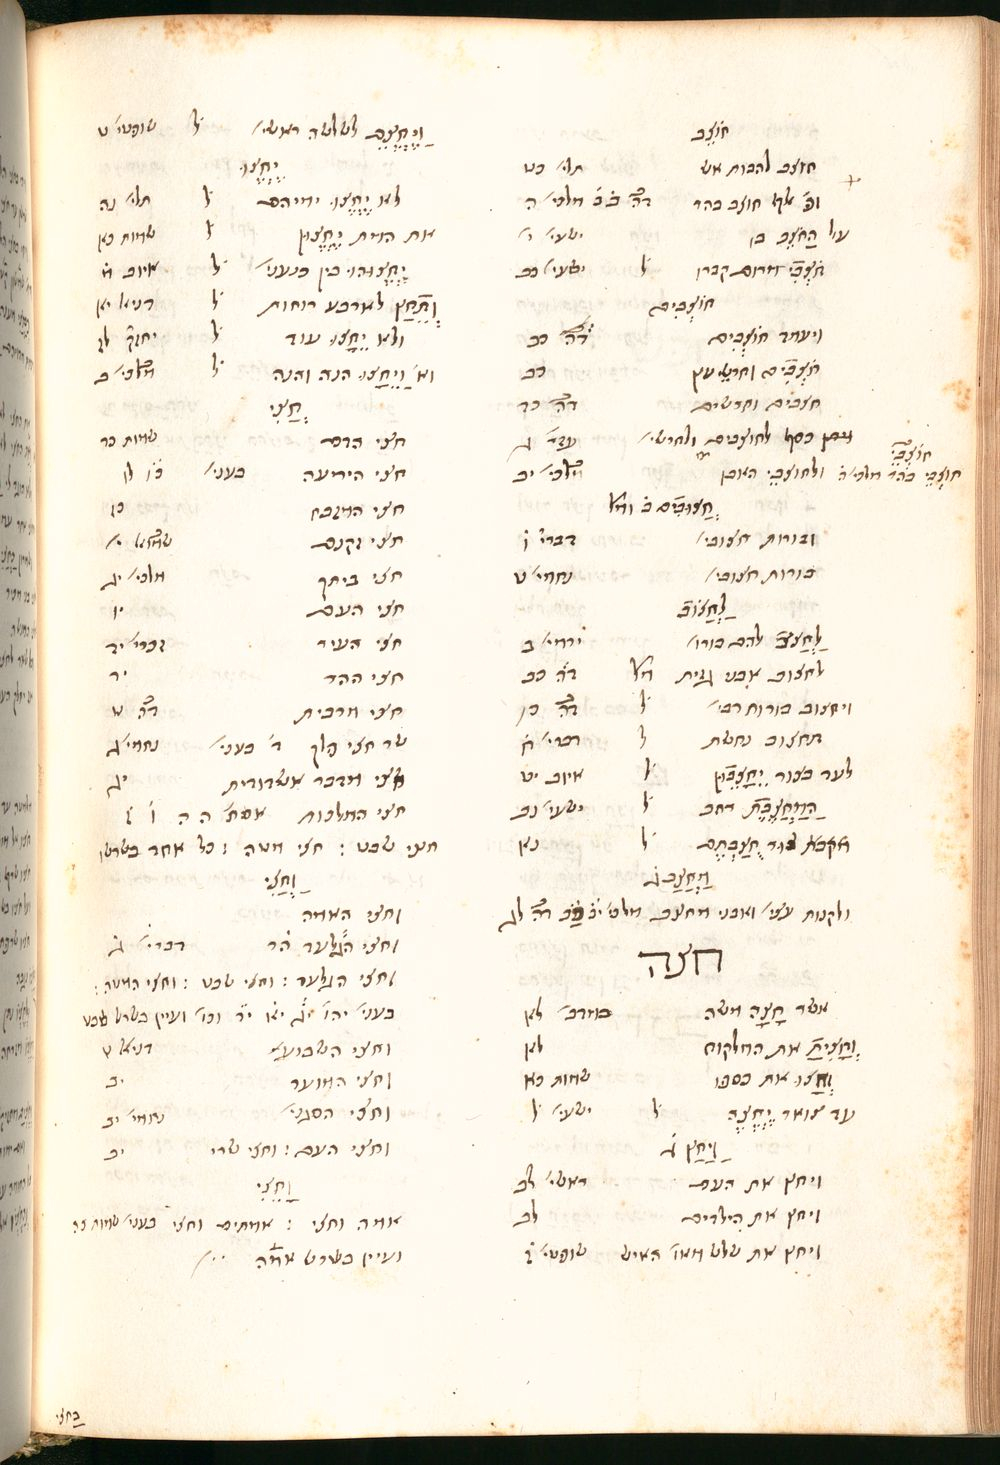 חוֹצֵב
חוצב להבות אש תלי׳ כט
חוצב בהר
על הַחֹצֵב בו ישעי׳ י׳
חֹצְבִי מרום קברו ל ישעי׳ כב
חוֹצְבִים
ויעמד חוֹצְבִים דה׳ כב
חֹצְבִים וחרשי עץ כב
חצבים וחרשים דה׳ כד
ויתנו כסף לחוצבים ולחרשי׳ עזר׳ ג
ולחוצבי האבן מלכי׳ יב
חוֹצְבֵי
חוֹצְבֵי בהר מלכי׳
חֲצוּבִים
ובורות חצובי׳ דברי׳ ו
בורות חצובי׳ נחמי׳ ט
לַחְצוֹב
לַחְצֹב להם בורו׳ ירמי׳ ב
לחצוב אבני גזית דה׳ כב
ויחצוב בורות רבי׳ ל דה׳ כו
תחצוב נחשת ל דברי׳ ח
לעד בצור יֵחָצְבוּן ל איוב יט
הַמַּחְצֶבֶת רהב ל ישעי׳ נב
מקבת בור ל נא
מַחְצֵב
ולקנות עצי׳ ואבני מחצב מלכי׳ יב
חצה
אשר חָצָה משה במדב׳ לא
וְחָצִיתָ את המלקוח לא
וְחָצוּ את כספו שמות כא
עד צואר יֶחֱצֶה ל ישעי׳ ל
וַיַּחַץ ג
ויחץ את העם ראשי׳ לב
ויחץ את הילדים לג
ויחץ את שלש מאו׳ האיש שופטי׳ ז
וַיֶּחֱצֵם לשלשה ראשי׳ ל שופטי׳ ט
יֶחֱצוּ
לא יֶחֱצוּ ימיהם ל תלי׳ נה
את המת יֶחֱצוּן ל שמות כא
יֶחֱצוּהוּ בין כנעני׳ ל איוב מ
וְתֵחָץ לארבע רוחות ל דניאל יא
ולא יֵחָצוּ עוד ל יחזק׳ לז
וַיֵּחָצוּ הנה והנה ל מלכי׳ ב
חֲצִי
חצי הדם שמות כד
חצי היריעה כו
חצי המזבח כז
חצי זקנם שמואל י׳
חצי ביתך מלכי׳ יג
חצי העם יו
חצי העיר זכרי׳ יד
חצי ההר יד
חצי מרבית דה׳ ט
שר חצי פלך נחמי׳ ג
חצי מדבר אשדודית יג
חצי המלכות אסת׳ ה ה ז
חצי שבט : חצי מטה : כל אחד בשרשו
וַחֲצִי
וחצי האמה
וחצי הגלעד הר דברי׳ ג
וחצי הגלעד : וחצי שבט : וחצי המטה :
בעני׳ יהו׳ יג יא יד וכו׳ ועיין בשרש שבט
וחצי השבוע דניאל ט
וחצי המועד יב
וחצי הסגני׳ נחמי׳ יב
וחצי העם : וחצי שרי יב
וָחֵצִי
אמה וחצי : אמתים וחצי בעני׳ שמות כה
ועיין בשרש אמה
בַּחֲצִי